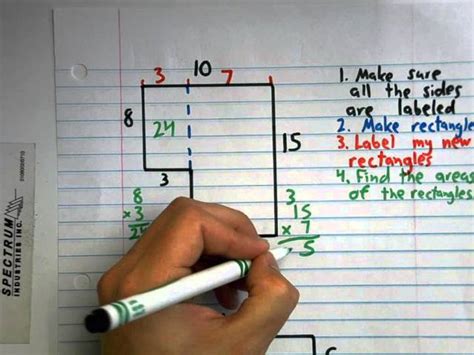 10
3 7
8
24
15
3
8
x3
3
15
x 7
5
1. Make sure
all the sides
are labeled
2. Make rectangle
3. Label my new
rectangles
4. Find the areas
of the rectangles.
SPECTRUM
INDUSTRIES INC.